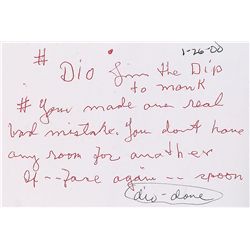 1-26-00
# Dio Jim the Dip
to monk
# Your made one real
bad mistake. You don't have
any room for another
If -- fase again -- spoon
dio-done